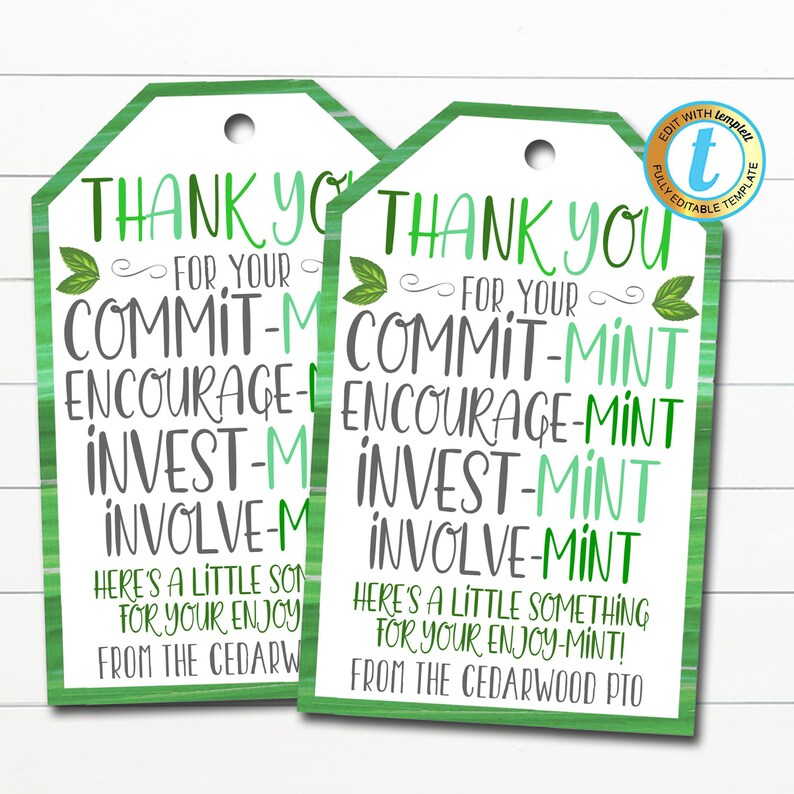 THANK YOU
FOR YOUR
COMMIT-M
ENCOURAGE-
INVEST-M
INVOLVE-M
HERE'S A LITTLE SOM
FOR YOUR ENJOY
FROM THE CEDARW
THANK YOU
FOR YOUR
COMMIT-MINT
ENCOURAGE-MINT
INVEST-MINT
INVOLVE-MINT
HERE'S A LITTLE SOMETHING
FOR YOUR ENJOY-MINT!
FROM THE CEDARWOOD PTO
EDIT WITH templett
t
FULLY EDITABLE TEMPLATE